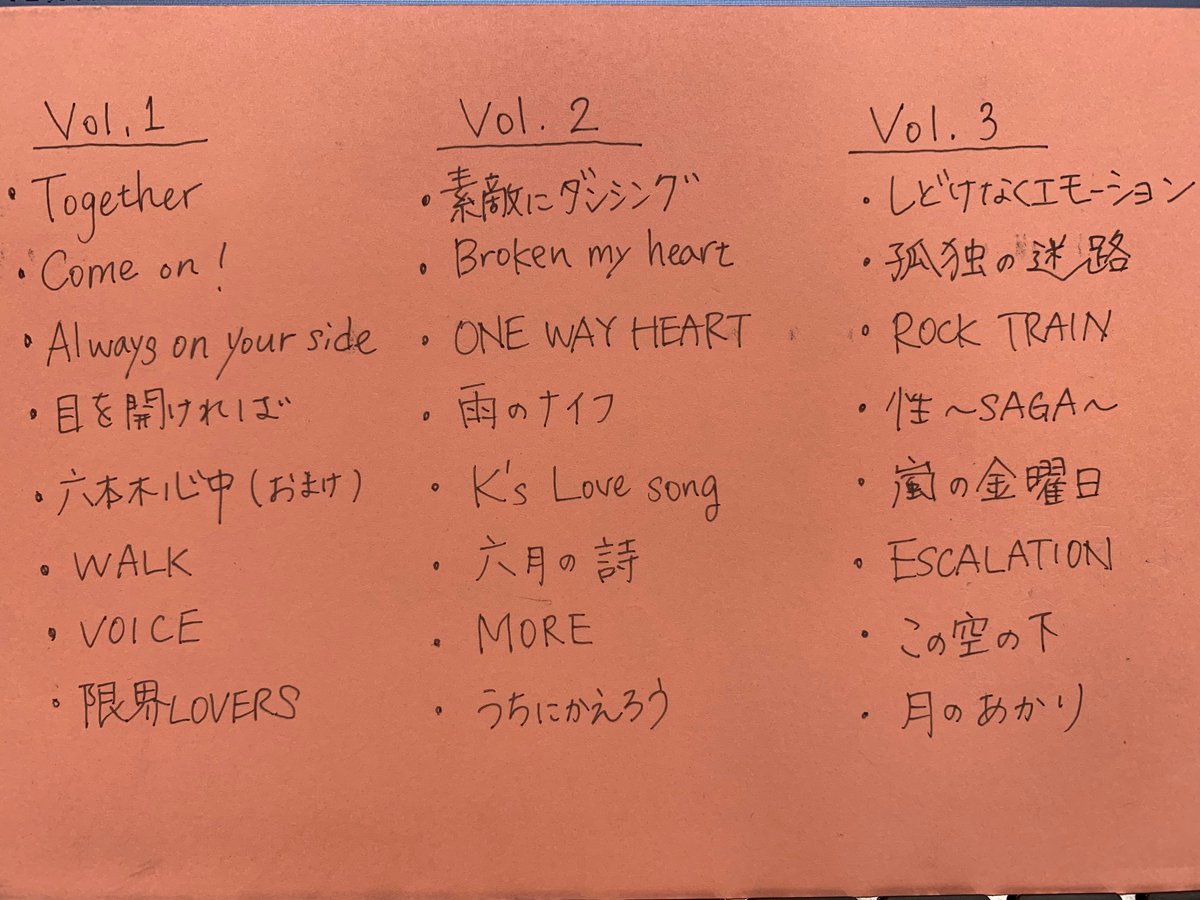 Vol.1
・Together
・Come on!
・Always on your side
・目を開ければ
・六本木心中(おまけ)
・WALK
・VOICE
・限界LOVERS
Vol.2
・素敵にダンシング
・Broken my heart
・ONE WAY HEART
・雨のナイフ
・K's Love song
・六月の詩
・MORE
・うちにかえろう
Vol.3
・しどけなくエモーション
・孤独の迷路
・ROCK TRAIN
・性〜SAGA〜
・嵐の金曜日
・ESCALATION
・この空の下
・月のあかり